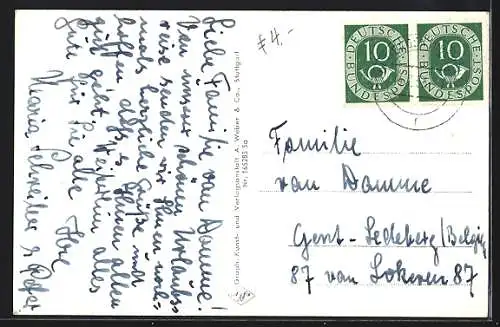 Liebe Familie van Damme!
Von unserer schönen Urlaubs-
reise senden wir Ihnen noch-
mals herzliche Grüße und
hoffen daß es Ihnen allen
gut geht. Weiterhin alles
Gute für Sie alle Ihre
Maria Schreiber u. Peter
Graph. Kunst- und Verlagsanstalt A. Weber & Co., Stuttgart
Nr. 165285 5a
₰ 4.-
DEUTSCHE
BUNDESPOST
10
DEUTSCHE
BUNDESPOST
10
Familie
van Damme
Gent-Ledeberg/Belgien
87 van Lokeren 87